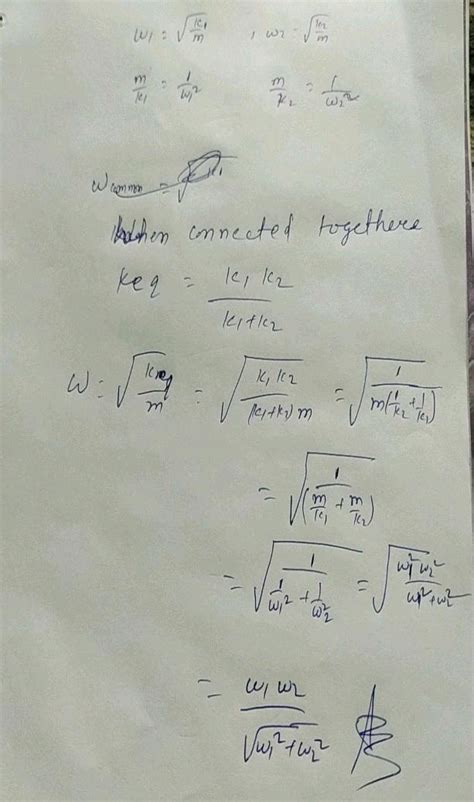 ω₁ = √(k₁/m) , ω₂ = √(k₂/m)
m/k₁ = 1/ω₁² m/k₂ = 1/ω₂²
ω common =
When connected togethere
keq = k₁ k₂ / k₁+k₂
ω = √(keq/m) = √(k₁ k₂ / (k₁+k₂) m) = √(1 / m(1/k₂ + 1/k₁))
= √(1 / (m/k₁ + m/k₂))
= √(1 / (1/ω₁² + 1/ω₂²)) = √(ω₁² ω₂² / ω₁² + ω₂²)
= ω₁ ω₂ / √(ω₁² + ω₂²)